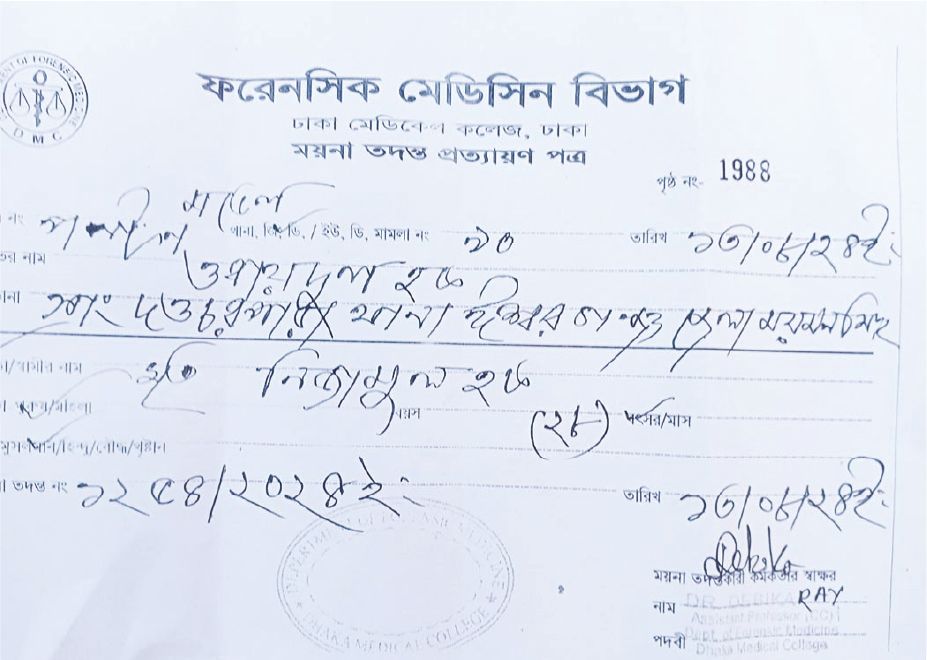 DEPARTMENT OF FORENSIC MEDICINE
DMC
ফরেনসিক মেডিসিন বিভাগ
ঢাকা মেডিকেল কলেজ, ঢাকা
ময়না তদন্ত প্রত্যায়ণ পত্র
পৃষ্ঠ নং- 1988
নং মডেল থানা, জি, ডি, / ইউ, ডি, মামলা নং ৯০ তারিখ ১৩/০৮/২৪ইং
নাম ওবায়দুল হক
সাং থানা ঈশ্বরগঞ্জ জেলা ময়মনসিংহ
/স্বামীর নাম মৃত নিজামুল হক
পুরুষ/মহিলা বয়স (২৮) বৎসর/মাস
মুসলমান/হিন্দু/বৌদ্ধ/খৃষ্টান
তদন্ত নং ১২৫৪/২০২৪ইং তারিখ ১৩/০৮/২৪ইং
DEPARTMENT OF FORENSIC MEDICINE
DHAKA MEDICAL COLLEGE
ময়না তদন্তকারী কর্মকর্তার স্বাক্ষর
নাম DR. DEBIKA RAY
পদবী Assistant Professor (CC)
Dept. of Forensic Medicine
Dhaka Medical College